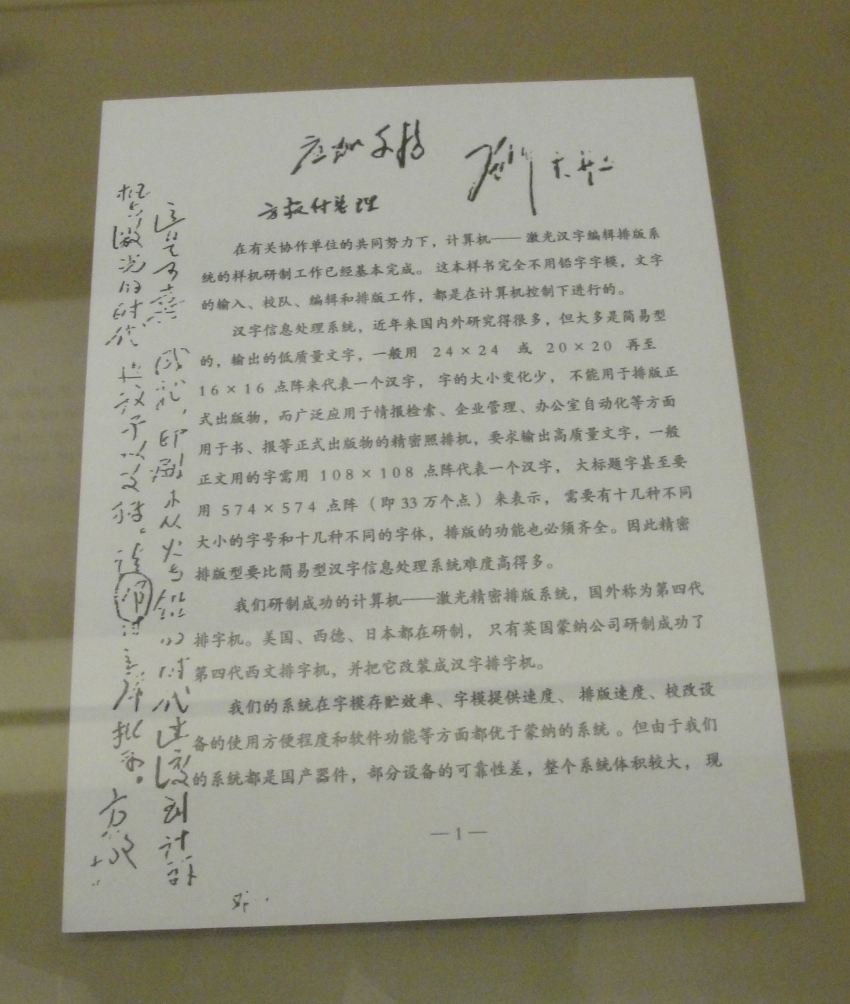 应加支持
方毅付总理
在有关协作单位的共同努力下，计算机——激光汉字编辑排版系
统的样机研制工作已经基本完成。这本样书完全不用铅字字模，文字
的输入、校队、编辑和排版工作，都是在计算机控制下进行的。
汉字信息处理系统，近年来国内外研究得很多，但大多是简易型
的，输出的低质量文字，一般用 24×24 或 20×20 再至
16×16 点阵来代表一个汉字，字的大小变化少，不能用于排版正
式出版物，而广泛应用于情报检索、企业管理、办公室自动化等方面
用于书、报等正式出版物的精密照排机，要求输出高质量文字，一般
正文用的字需用 108×108 点阵代表一个汉字，大标题字甚至要
用 574×574 点阵（即33万个点）来表示，需要有十几种不同
大小的字号和十几种不同的字体，排版的功能也必须齐全。因此精密
排版型要比简易型汉字信息处理系统难度高得多。
我们研制成功的计算机——激光精密排版系统，国外称为第四代
排字机。美国、西德、日本都在研制，只有英国蒙纳公司研制成功了
第四代西文排字机，并把它改装成汉字排字机。
我们的系统在字模存贮效率、字模提供速度、排版速度、校改设
备的使用方便程度和软件功能等方面都优于蒙纳的系统。但由于我们
的系统都是国产器件，部分设备的可靠性差，整个系统体积较大，现
—1—
这是可喜的成就，印刷术从火与铅的时代过渡到计算
机与激光的时代，建议予以支持。请邓副主席批示。
方毅